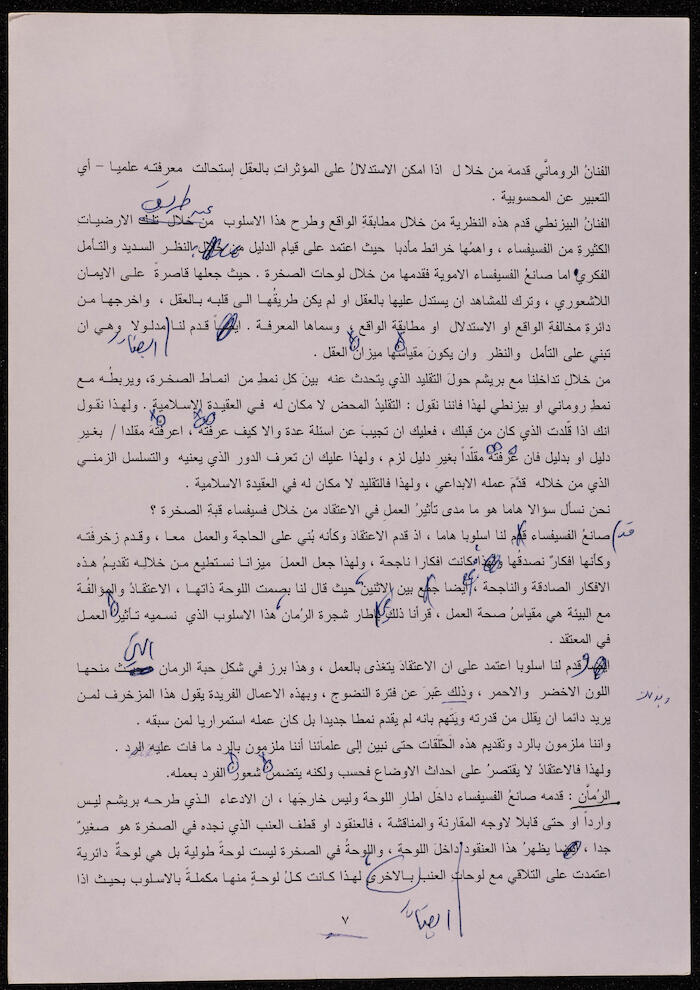 الفنانُ الرومانَّي قدمهَ من خلال اذا امكن الاستدلالُ على المؤثرات بالعقلِ إستحالت معرفتـه علميـا – أي
التعبير عن المحسوبية .
عبر طريق
الفنانُ البيزنطي قدم هذه النظرية من خلال مطابقةِ الواقع وطرح هذا الاسلوب من خلال تلك الارضيـاتِ
الكثيرة من الفسيفساء ، واهمُها خرائط مأدبا حيث اعتمد على قيام الدليل من خلال بالنظر السديد والتـأمل
الفكري اما صانعُ الفسيفساء الاموية فقدمها من خلال لوحات الصخرة . حيث جعلها قاصرةً علـى الايمـان
اللاشعوري ، وترك للمشاهد ان يستدل عليها بالعقل او لم يكن طريقُهـا الـى قلبـه بـالعقل ، واخرجهـا مـن
دائرة مخالفةِ الواقع او الاستدلال او مطابقةِ الواقع ، وسماها المعرفـة . ايضاً قـدم لنـا مدلـولا وهـي ان
ايضاً
تبني على التأمل والنظر وان يكونَ مقياسُها ميزانُ العقل .
من خلالِ تداخلنا مع بريشم حولَ التقليد الذي يتحدث عنه بينَ كلِ نمطٍ من انمـاط الصخـرة، ويربطُـه مـع
نمط روماني او بيزنطي لهذا فاننا نقول : التقليدُ المحض لا مكان له فـي العقيـدةِ الاسـلاميةِ . ولهـذا نقـول
انك اذا قلّدت الذي كان من قبلك ، فعليك ان تجيبَ عن اسئلة عدة والا كيف عرفتَه ، اعرفتَهُ مقلدا / بغيـرِ
دليل او بدليل فان عرفتَهُ مقلّداً بغيرِ دليل لزم ، ولهذا عليك ان تعرف الدور الذي يعنيه والتسلسل الزمنـي
الذي من خلاله قدَّمَ عمله الابداعي ، ولهذا فالتقليد لا مكان له في العقيدة الاسلامية .
نحن نسأل سؤالا هاما هو ما مدى تأثيرُ العملِ في الاعتقاد من خلال فسيفساء قبةِ الصخرة ؟
قد
صانعُ الفسيفساء قدم لنا اسلوبا هاما ، اذ قدم الاعتقادَ وكأنه بُني على الحاجة والعمل معـا ، وقـدم زخرفَتـه
وكأنها افكارٌ نصدقُها ولهذا فكانت افكارا ناجحة ، ولهذا جعل العملَ ميزانـا نسـتطيع مـن خلالِـه تقديـمُ هـذه
الافكار الصادقة والناجحة ، أيضا جمع بين الاثنين حيث قال لنا بصمت اللوحة ذاتهـا ، الاعتقـادُ والمؤالفُـة
مع البيئة هي مقياسُ صحة العمل ، قرأنا ذلك بإطار شجرة الرُمان هذا الاسلوب الذي نسـميه تـأثيرُ العمـل
في المعتقد .
التي
ايضا وقدم لنا اسلوبا اعتمد على ان الاعتقادَ يتغذى بالعمل ، وهذا برز في شكلِ حبة الرمان حيث منحهـا
اللون الاخضر والاحمر ، وذلك عَبَرَ عن فترة النضوج ، وبهذه الاعمال الفريدة يقول هذا المزخرف لمـن
وبذلك
يريد دائما ان يقلل من قدرته ويَتهم بانه لم يقدم نمطا جديدا بل كان عمله استمراريا لمن سبقه .
واننا ملزمون بالرد وتقديم هذه الحَلَقات حتى نبين إلى علمائنا أننا ملزمون بالرد ما فات عليه الرد .
ولهذا فالاعتقادُ لا يقتصرُ على احداث الاوضاع فحسب ولكنه يتضمنُ شعورُ الفرد بعمله.
الرُمّان : قدمه صانعُ الفسيفساء داخل اطارِ اللوحة وليس خارجَها ، ان الادعاء الـذي طرحـه بريشـم ليـس
وارداً او حتى قابلا لاوجه المقارنة والمناقشة ، فالعنقود او قطف العنب الذي نجده في الصخرة هو صغيرٌ
جدا ، ايضا يظهرُ هذا العنقود داخلَ اللوحة ، واللوحةُ في الصخرة ليست لوحةً طولية بل هي لوحةٌ دائرية
اعتمدت على التلاقي مع لوحاتِ العنب بـالاخرى لهذا كـانت كـلُ لوحـةٍ منهـا مكملـةً بالاسـلوب بحيـث اذا
ايضاً
٧